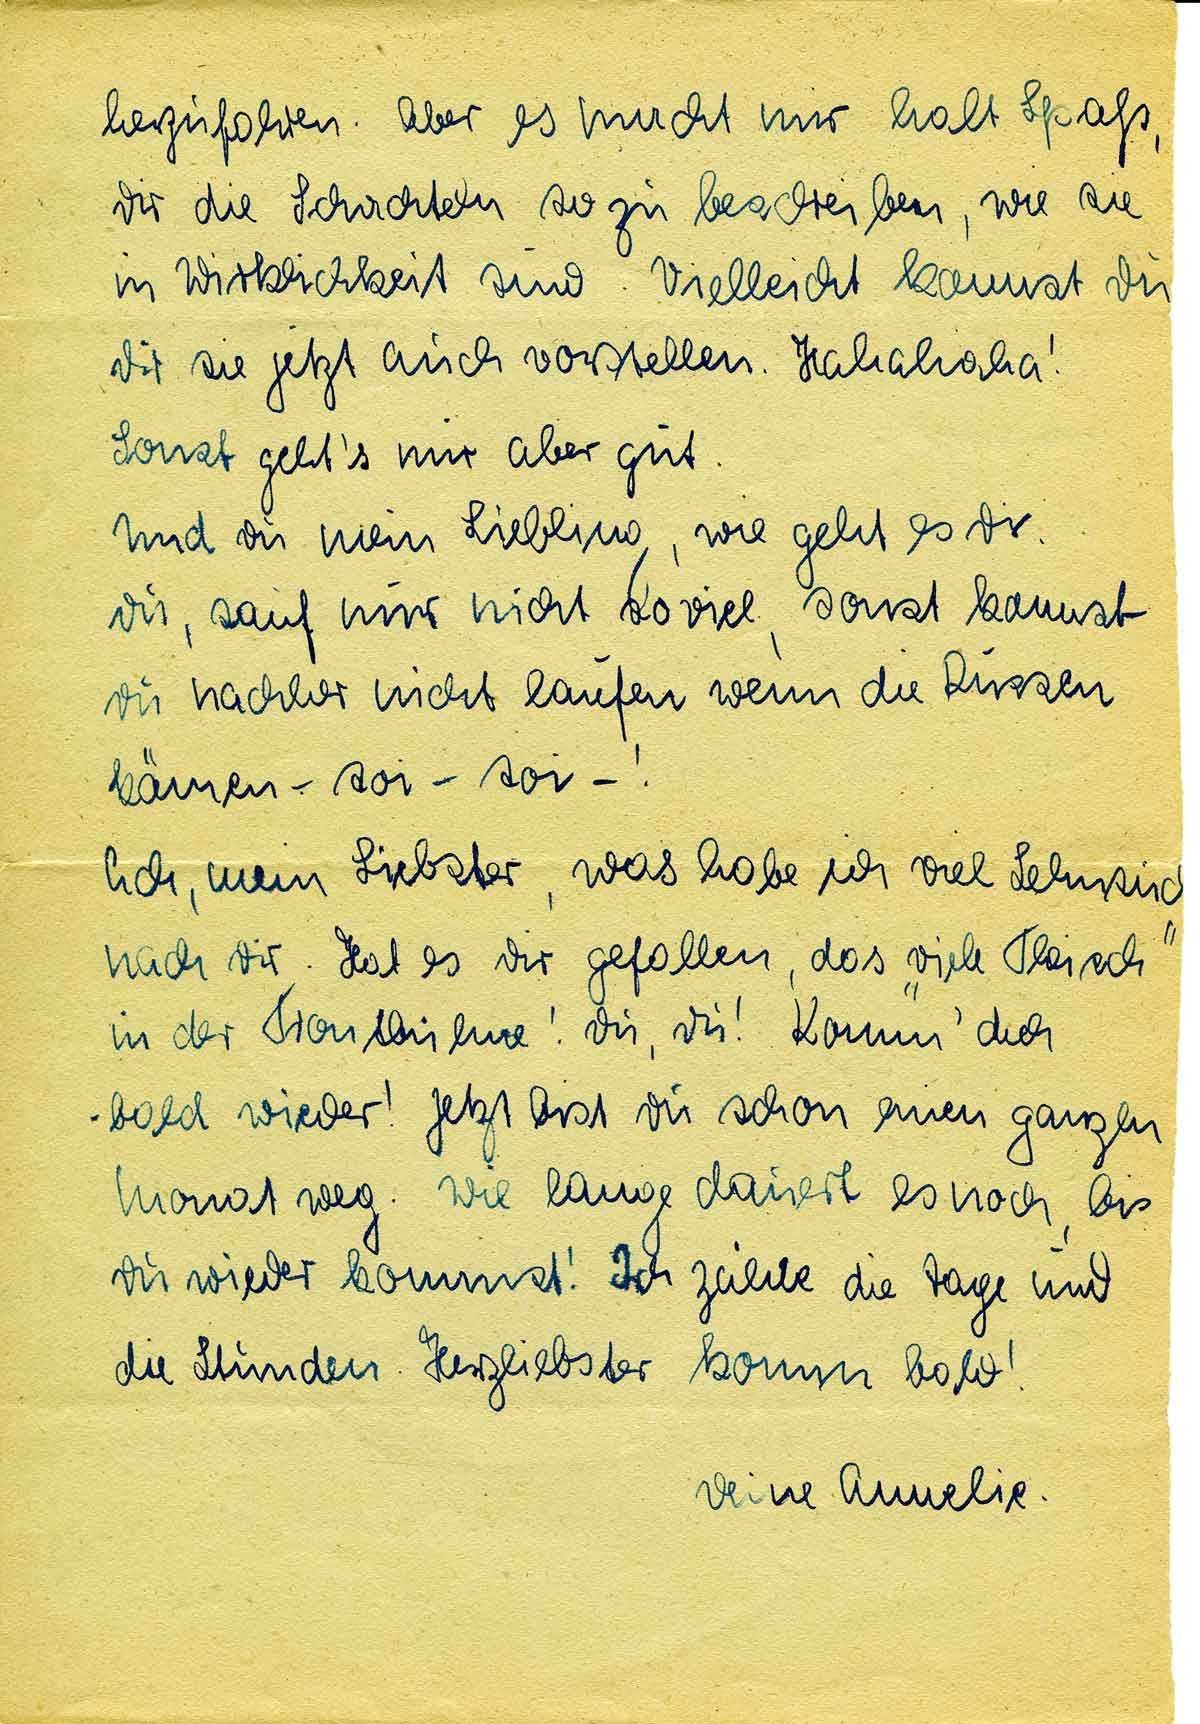 herzufahren. Aber es macht mir halt Spaß,
dir die Schachteln so zu beschreiben, wie sie
in Wirklichkeit sind. Vielleicht kannst du
dir sie jetzt auch vorstellen. Hahahaha!
Sonst geht's mir aber gut.
Und du mein Liebling, wie geht es dir.
du, sauf nur nicht so viel, sonst kannst
du nachher nicht laufen wenn die Russen
kämen - soi - soi - !
Ach, mein Liebster, was habe ich viel Sehnsucht
nach dir. Hat es dir gefallen, das „viele Fleisch"
in der Frontbühne! du, du! Komm' doch
bald wieder! Jetzt bist du schon einen ganzen
Monat weg. Wie lange dauert es noch, bis
du wieder kommst! Ich zähle die Tage und
die Stunden. Herzliebster komm bald!
deine Annelie.